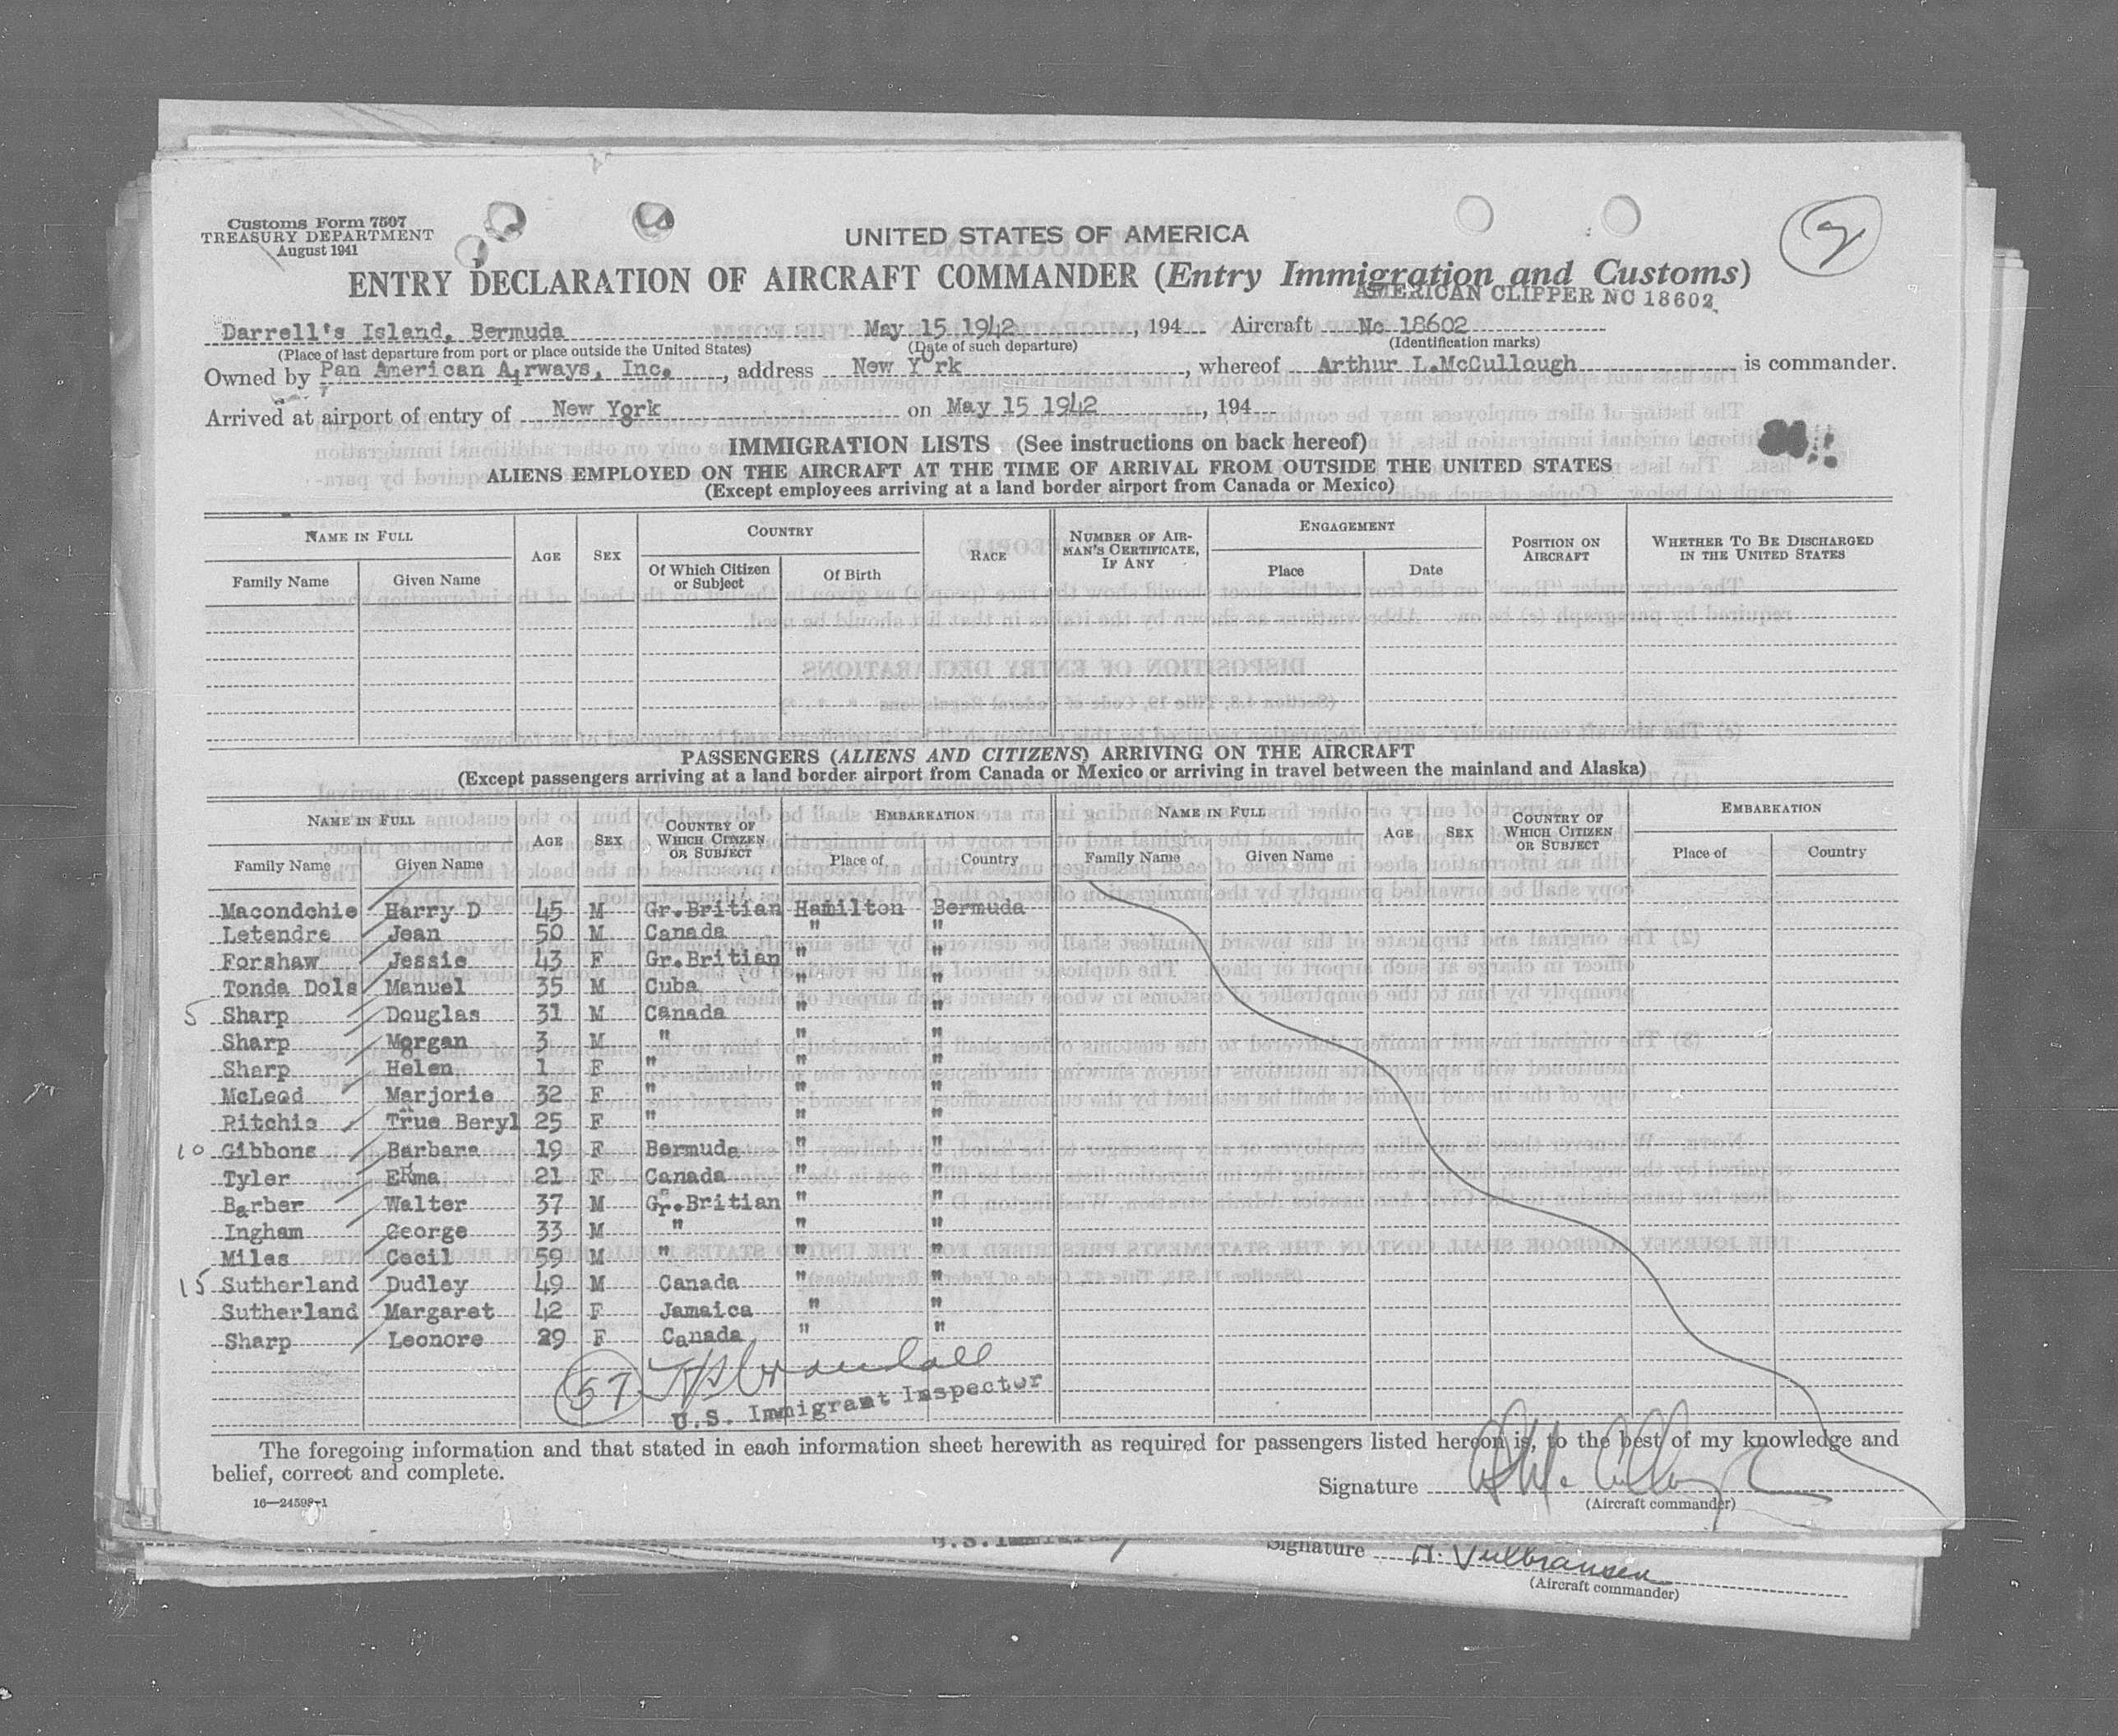 Customs Form 7507
TREASURY DEPARTMENT
August 1941
UNITED STATES OF AMERICA
ENTRY DECLARATION OF AIRCRAFT COMMANDER (Entry Immigration and Customs)
AMERICAN CLIPPER NC 18602
Darrell's Island, Bermuda May 15 1942, 194 Aircraft Nc 18602
(Place of last departure from port or place outside the United States) (Date of such departure) (Identification marks)
Owned by Pan American Airways, Inc., address New York, whereof Arthur L.McCullough is commander.
Arrived at airport of entry of New York on May 15 1942, 194
IMMIGRATION LISTS (See instructions on back hereof)
ALIENS EMPLOYED ON THE AIRCRAFT AT THE TIME OF ARRIVAL FROM OUTSIDE THE UNITED STATES
(Except employees arriving at a land border airport from Canada or Mexico)
NAME IN FULL AGE SEX COUNTRY RACE NUMBER OF AIRMAN'S CERTIFICATE, IF ANY ENGAGEMENT POSITION ON AIRCRAFT WHETHER TO BE DISCHARGED IN THE UNITED STATES
Family Name Given Name Of Which Citizen or Subject Of Birth Place Date
PASSENGERS (ALIENS AND CITIZENS) ARRIVING ON THE AIRCRAFT
(Except passengers arriving at a land border airport from Canada or Mexico or arriving in travel between the mainland and Alaska)
NAME IN FULL AGE SEX COUNTRY OF WHICH CITIZEN OR SUBJECT EMBARKATION NAME IN FULL AGE SEX COUNTRY OF WHICH CITIZEN OR SUBJECT EMBARKATION
Family Name Given Name Place of Country Family Name Given Name Place of Country
Macondchie Harry D 45 M Gr.Britian Hamilton Bermuda
Letendre Jean 50 M Canada " "
Forshaw Jessie 43 F Gr.Britian " "
Tonda Dols Manuel 35 M Cuba " "
5 Sharp Douglas 31 M Canada " "
Sharp Morgan 3 M " " "
Sharp Helen 1 F " " "
McLeod Marjorie 32 F " " "
Ritchie True Beryl 25 F " " "
10 Gibbons Barbara 19 F Bermuda " "
Tyler ERma 21 F Canada " "
Barber Walter 37 M Gr.Britian " "
Ingham George 33 M " " "
Miles Cecil 59 M " " "
15 Sutherland Dudley 49 M Canada " "
Sutherland Margaret 42 F Jamaica " "
Sharp Leonore 29 F Canada " "
57
U.S. Immigrant Inspector
The foregoing information and that stated in each information sheet herewith as required for passengers listed hereon is, to the best of my knowledge and
belief, correct and complete.
Signature
16—24598-1 (Aircraft commander)
Signature
(Aircraft commander)